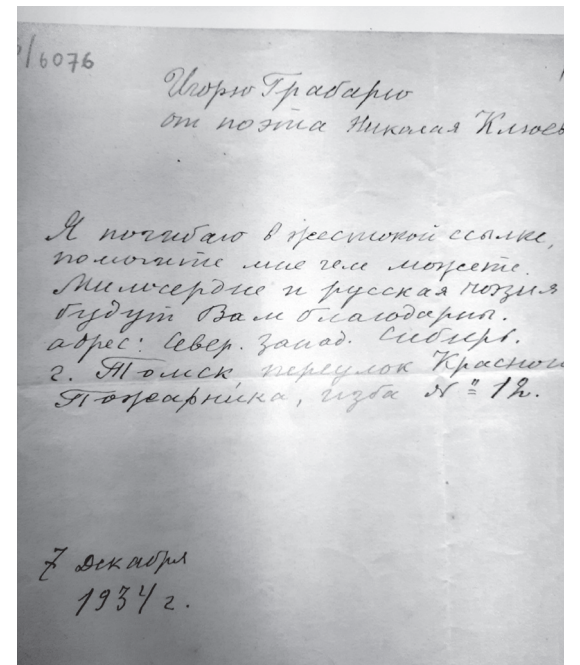 /6076
Игорю Грабарю
от поэта Николая Клюев
Я погибаю в жестокой ссылке,
помогите мне чем можете.
Милосердие и русская поэзия
будут Вам благодарны.
адрес: Север. Запад. Сибирь.
г. Томск переулок Красного
Пожарника, изба № 12.
7 декабря
1934 г.